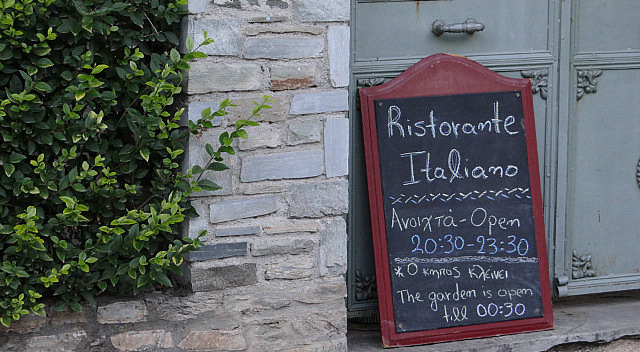 Ristorante
Italiano
Ανοιχτά - Open
20:30-23:30
* Ο κηπος κλείνει
The garden is open
till 00:30